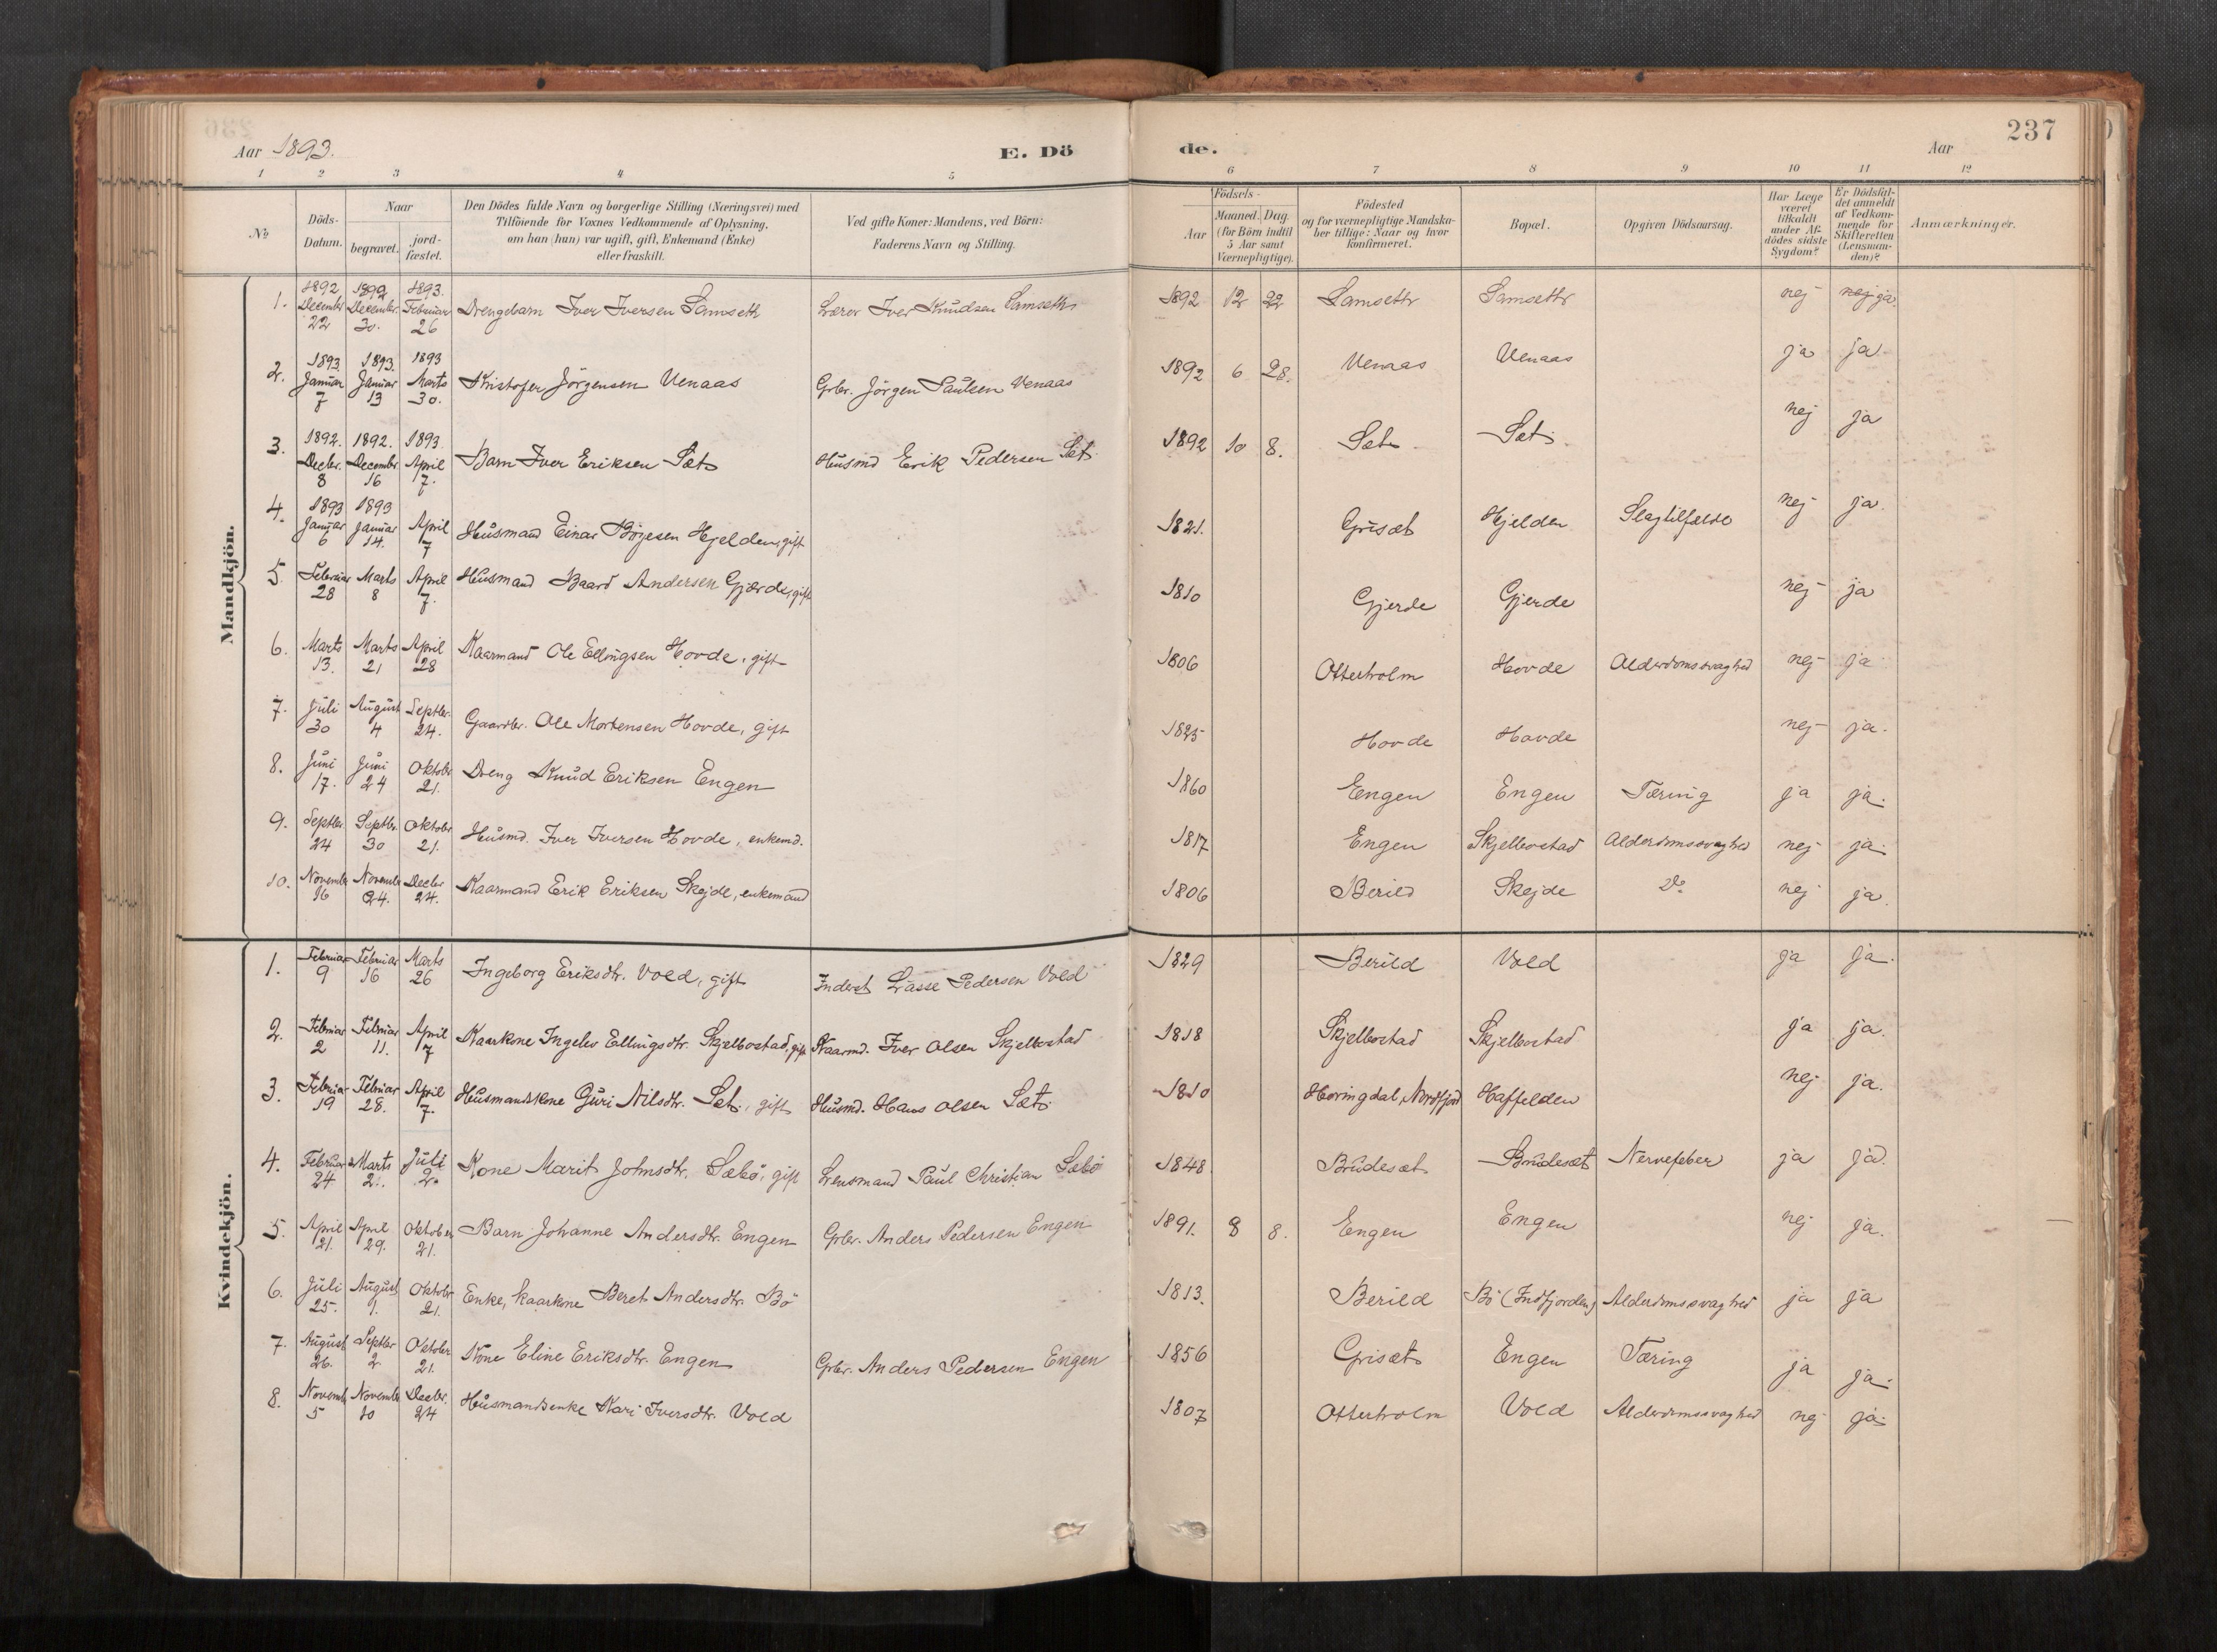 237
Aar 1893. E. Dö de. Aar
1 2 3 4 5 6 7 8 9 10 11 12
No Döds-Datum. Naar begravet. jord-fæstet. Den Dödes fulde Navn og borgerlige Stilling (Næringsvei) med Tilföiende for Voxnes Vedkommende af Oplysning, om han (hun) var ugift, gift, Enkemand (Enke) eller fraskilt. Ved gifte Koner: Mandens, ved Börn: Faderens Navn og Stilling. Födsels- Aar Maaned. Dag. (for Börn indtil 5 Aar samt Værnepligtige). Födested og for værnepligtige Mandskaber tillige: Naar og hvor konfirmeret. Bopæl. Opgiven Dödsaarsag. Har Læge været tilkaldt under Afdödes sidste Sygdom? Er Dödsfaldet anmeldt af Vedkommende for Skifteretten (Lensmanden)? Anmærkninger.
Mandkjön.
1. 1892 December 22 1892 December 30. 1893. Februar 26 Drengebarn Iver Iversen Samseth Lærer Iver Knudsen Samseth 1892 12 22 Samseth Samseth nej nej ja.
2. 1893. Januar 7 1893. Januar 13 1893 Marts 30. Kristofer Jörgensen Venaas Gbr. Jörgen Paulsen Venaas 1892 6 28. Venaas Venaas ja ja
3. 1892. Decbr. 8 1892. December 16 1893 April 7. Barn Iver Eriksen Sæt Husmd Erik Pedersen Sæt 1892 10 8. Sæt Sæt nej ja
4. 1893 Januar 6 1893 Januar 14. April 7 Husmand Einar Börgesen Hjelden, gift 1821. Grisæt Hjelden Slagtilfælde nej ja.
5. Februar 28 Marts 8 April 7. Husmand Baard Andersen Gjerde, gift 1810 Gjerde Gjerde nej ja
6. Marts 13. Marts 21 April 28 Kaarmand Ole Ellingsen Hovde, gift 1806 Otterholm Hovde Alderdomssvaghed nej ja
7. Juli 30 August 4 Septbr. 24. Gaardbr. Ole Mortensen Hovde, gift 1825 Hovde Hovde nej ja.
8. Juni 17. Juni 24 Oktober 21. Dreng Knud Eriksen Engen 1860 Engen Engen Tæring ja ja.
9. Septbr. 24 Septbr. 30 Oktober 21. Husmd. Iver Iversen Hovde, enkemd. 1817 Engen Skjelbostad Alderdomssvaghed nej ja
10. Novembr 16 Novembr 24. Decbr 24. Kaarmand Erik Eriksen Skejde, enkemand 1806 Berild Skejde Do nej ja.
Kvindekjön.
1. Februar 9 Februar 16 Marts 26 Ingeborg Eriksdtr. Vold, gift Inderst Lasse Pedersen Vold 1829 Berild Vold ja ja.
2. Februar 2 Februar 11. April 7 Kaarkone Ingelev Ellingsdtr. Skjelbostad, gift Kaarmd. Iver Olsen Skjelbostad 1818 Skjelbostad Skjelbostad ja ja.
3. Februar 19 Februar 28. April 7. Husmandskone Guri Nilsdtr. Sæt, gift Husmd. Hans Olsen Sæt 1810 Horningdal, Nordfjord Haffelden nej ja.
4. Februar 24 Marts 2. Juli 2. Kone Marit Johnsdtr. Sæbö, gift Lensmand Paul Christian Sæbö 1848 Brudesæt Brudesæt Nervefeber ja ja.
5. April 21. April 29. Oktober 21. Barn Johanne Andersdtr. Engen Gbr. Anders Pedersen Engen 1891. 8 8. Engen Engen nej ja.
6. Juli 25. August 1. Oktober 21. Enke, Kaarkone Beret Andersdtr. Bö 1813. Berild Bö (Indfjorden) Alderdomssvaghed ja ja
7. August 26. Septbr 2 Oktober 21. Kone Eline Eriksdtr. Engen Gbr. Anders Pedersen Engen 1856 Grisæt Engen Tæring ja ja
8. Novembr 5 Novembr 10 Decbr. 24 Husmandsenke Kari Iversdtr. Vold 1807 Otterholm Vold Alderdomssvaghed nej ja